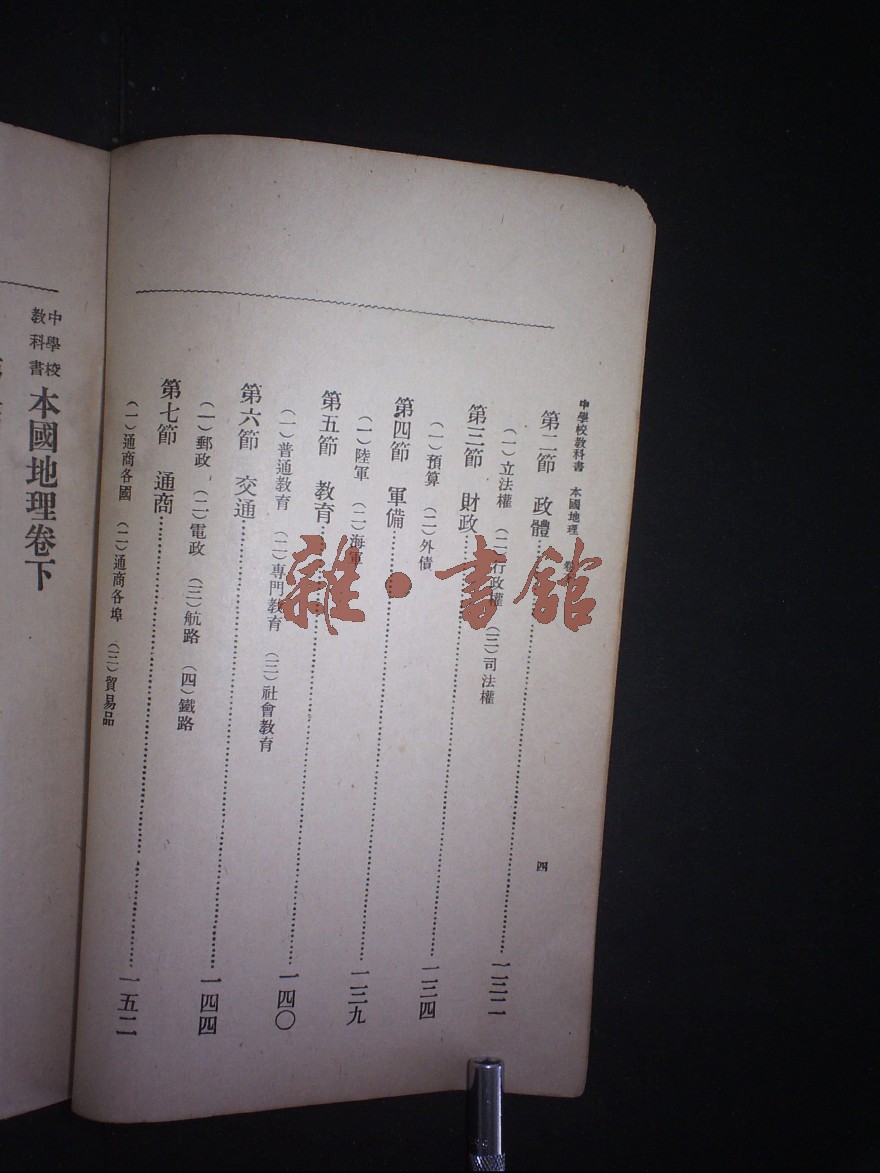 中學校教科書 本國地理 卷
四
第二節 政體……一三二
(一)立法權 (二)行政權 (三)司法權
第三節 財政……一三四
(一)預算 (二)外債
第四節 軍備……一三九
(一)陸軍 (二)海軍
第五節 教育……一四〇
(一)普通教育 (二)專門教育 (三)社會教育
第六節 交通……一四四
(一)郵政 (二)電政 (三)航路 (四)鐵路
第七節 通商……一五二
(一)通商各國 (二)通商各埠 (三)貿易品
中學校教科書 本國地理卷下
雜·書館